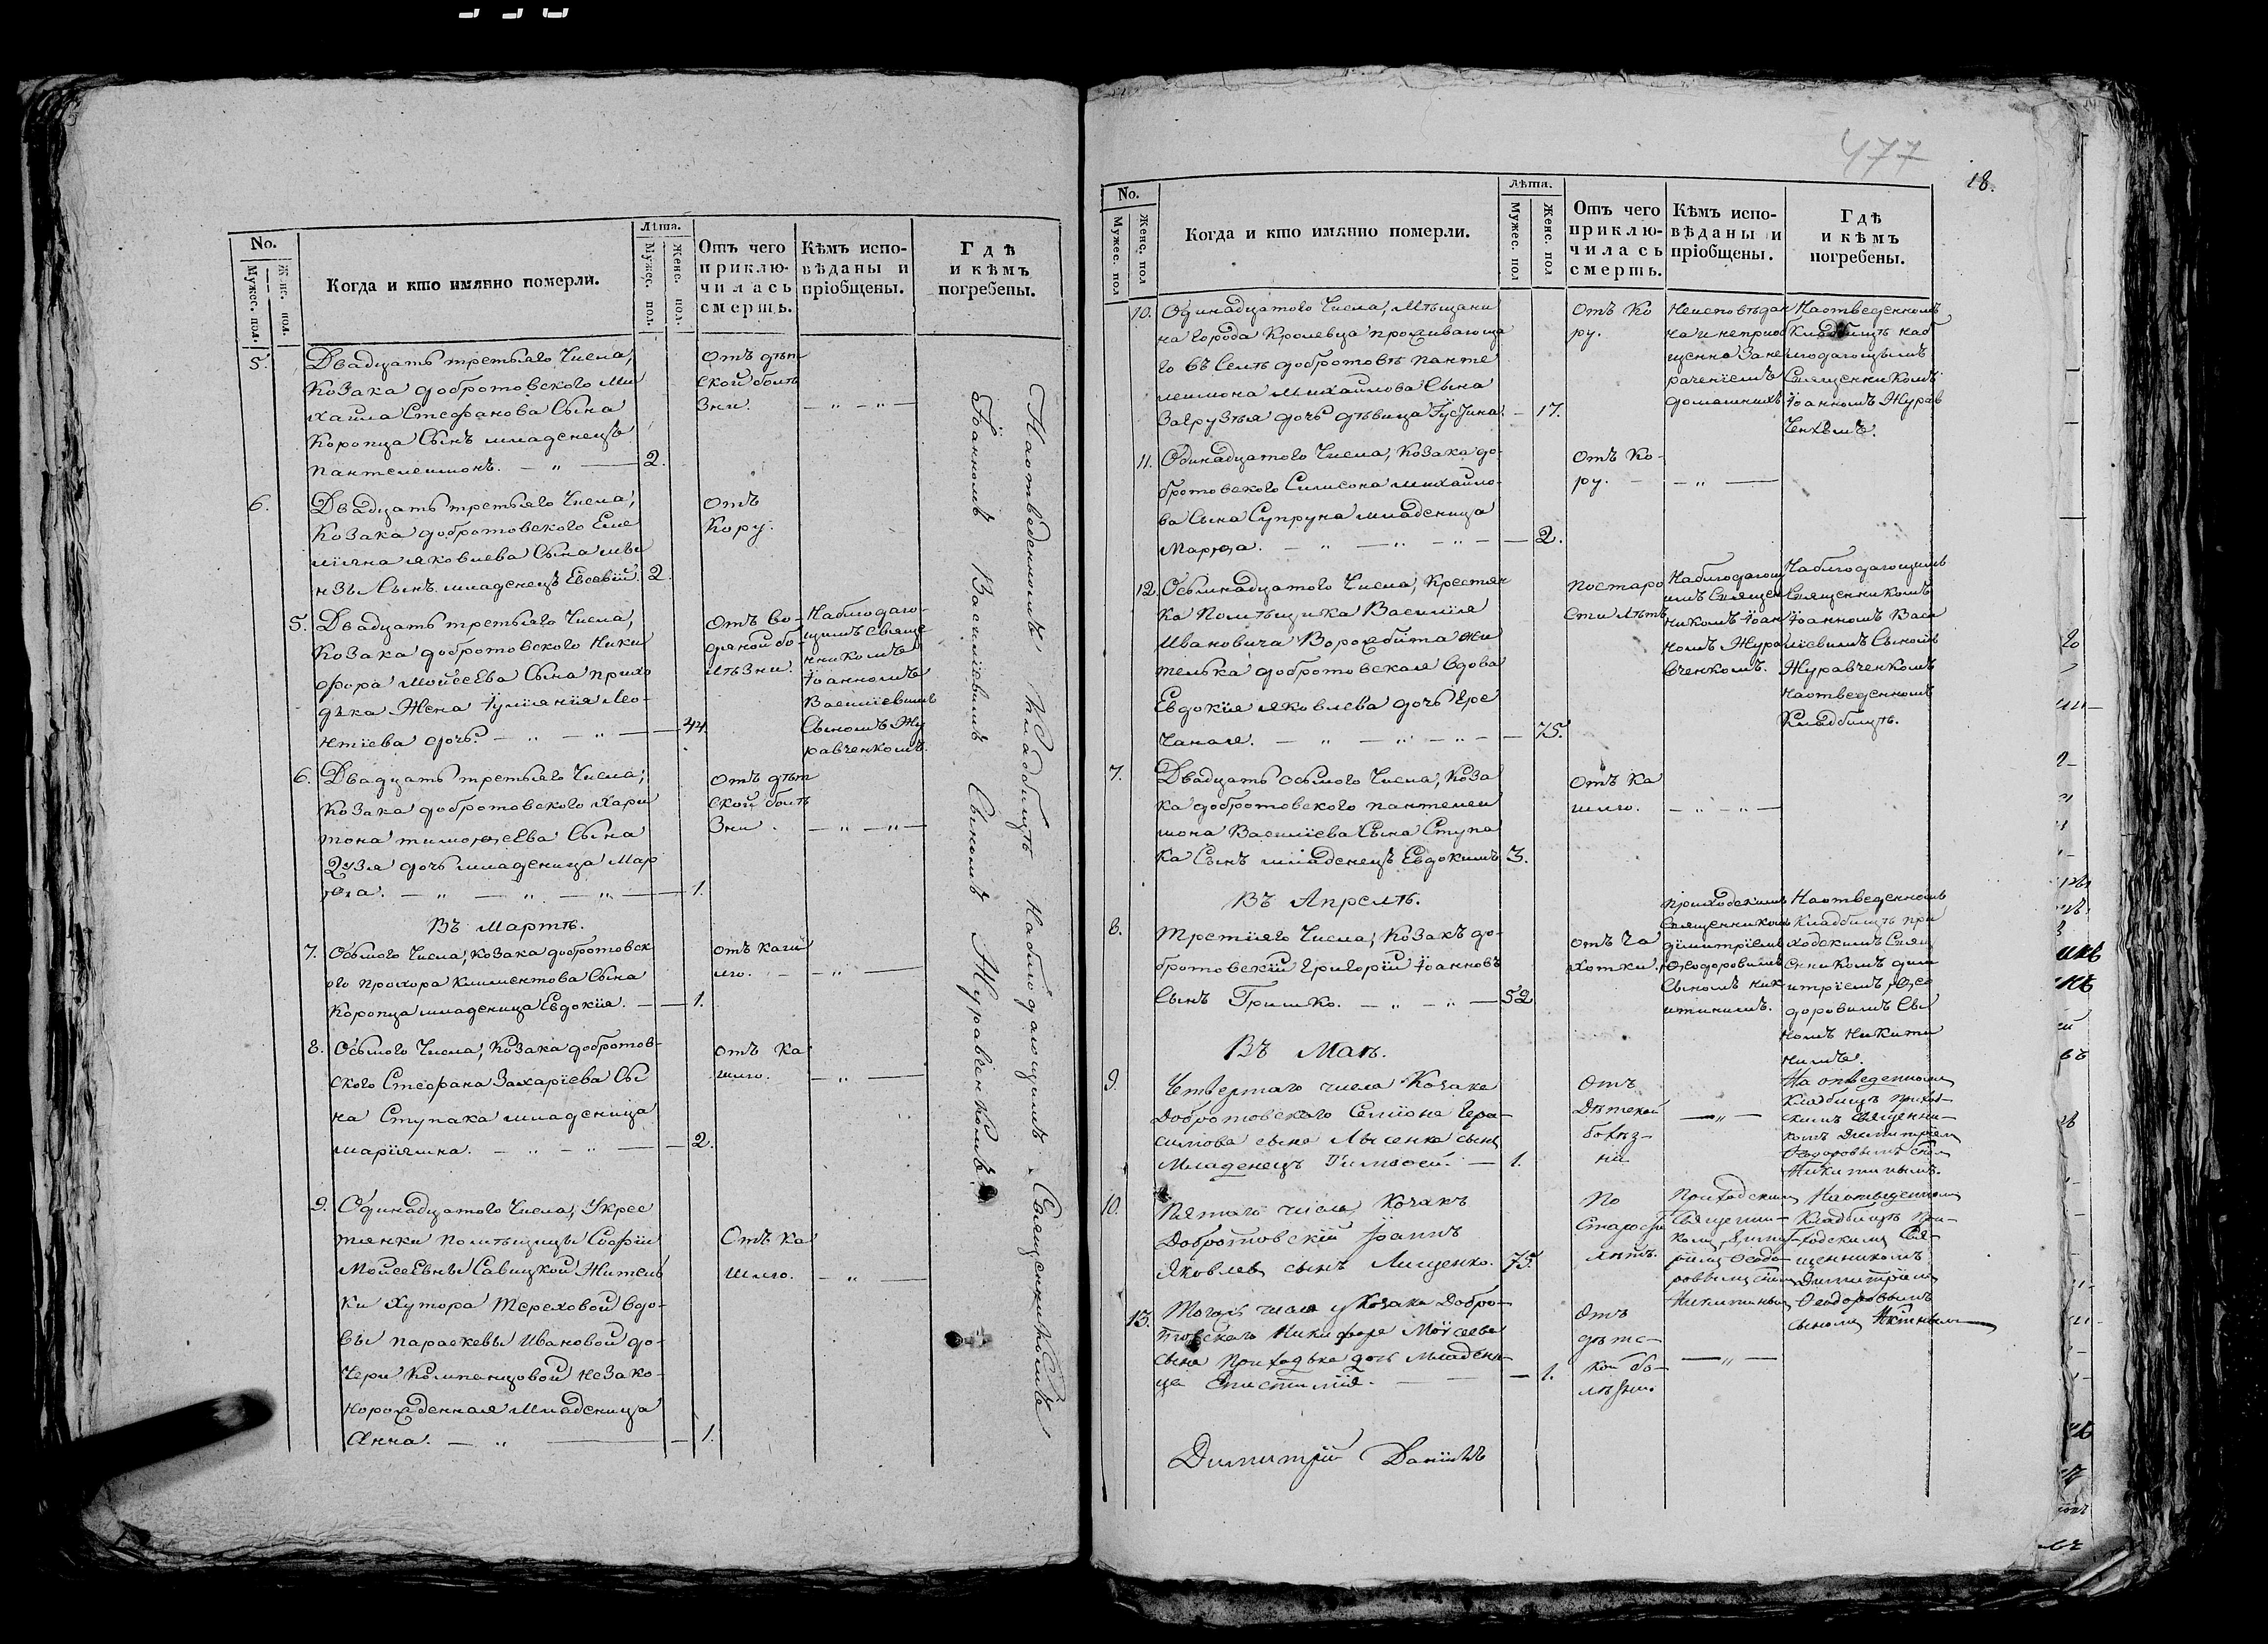 No.
Мужес. пол.
Женс. пол.
Когда и кто имянно померли.
Лѣта.
Мужес. пол.
Женс. пол.
Отъ чего приклю-
чилась
смерть.
Кѣмъ испо-
вѣданы и
пріобщены.
Гдѣ
и кѣмъ
погребены.
5.
Двадцать третьяго Числа,
Козака добротовского Ми
хайла Стефанова Сына
Коропца Сынъ младенецъ
Пантелеимонъ. — „ — 2.
Отъ дѣт
ской болѣ
зни.
— „ — „ —
6.
Двадцать третьяго Числа,
Козака добротовского Еме
ліяна Яковлева Сына
Сынъ младенецъ Евсевій. 2.
Отъ
Кору.
5.
Двадцать третьяго Числа,
Козака добротовского Ники
фора Мойсеева Сына прихо
дька Жена Іуліянія Лео-
нтіева дочь. — „ — „ — 44.
Отъ во-
дяной бо-
лѣзни.
Наблюдаю-
щимъ Свяще
нникомъ
Іоанномъ
Василіевымъ
Сыномъ Жу
равченкомъ.
6.
Двадцать третьяго Числа,
Козака добротовского Хари
тона тимофеева Сына
дочь младеница Мар
фа. — „ — „ — „ — 1.
Отъ дѣт
ской болѣ
зни.
— „ — „ —
Въ Мартѣ.
7.
Осьмого Числа, Козака добротовск
ого Прохора Климентова Сына
Коропца младеница Евдокія. — 1.
отъ каш
лю.
— „ —
8.
Осьмого Числа, Козака добротов-
ского Стефана Захаріева Сы
на Ступака младеница
Маріямна. — „ — „ — 2.
отъ Ка
шлю.
— „ —
9.
Одинадцатого Числа, Укрес
тянки Полѣщицы Софіи
Мойсеевны Савицкой Житель
ки Хутора Тереховой вдо-
вы параскевы Ивановой до-
чери незако-
норожденная Младеница
Анна. — „ — 1.
Отъ Ка
шлю.
— „ —
Наотведенномъ Кладбищѣ Наблюдающимъ Священникомъ
Іоанномъ Василіевымъ Сыномъ Журавченкомъ.
477
18.
No.
Мужес. пол
Женс. пол
Когда и кто имянно померли.
Лѣта.
Мужес. пол
Женс. пол
Отъ чего
приклю-
чилась
смерть.
Кѣмъ испо-
вѣданы и
пріобщены.
Гдѣ
и кѣмъ
погребены.
10.
Одинадцатого Числа, Мѣщани
на Города Кролевца проживающа
го въ Селѣ добротовѣ панте
леимона Михайлова Сына
дочь дѣвица Іустина. — 17.
Отъ Ко
ру.
Неисповѣдан
на и непріоб
щенна За не
раченіемъ
домашнихъ
Наотведенномъ
Кладбищѣ наб
людающимъ
Священникомъ
Іоанномъ Журав
ченкомъ.
11.
Одинадцатого Числа, Козака до-
бротовского Симеона Михайло-
ва Сына Супруна младеница
Марфа. — „ — „ — „ — 2.
Отъ Ко-
ру.
— „ —
12.
Осьмнадцатого Числа, Крестян
ка Полѣщика Василія
Ивановича Ворожбита жи
телька добротовская вдова
Евдокія Яковлева дочь Ере
. — „ — „ — „ — 75.
Постаро
сти лѣтъ
Наблюдающ
имъ Священ
никомъ Іоан
номъ Жура
вченкомъ.
Наблюдающимъ
Священникомъ
Іоанномъ Васи
ліевымъ Сыномъ
Журавченкомъ
Наотведенномъ
Кладбищѣ.
7.
Двадцать осьмого Числа, Коза
ка добротовского пантелеи
мона Василіева Сына Ступа
ка Сынъ младенецъ Евдокимъ 3.
отъ Ка
шлю.
— „ — „ —
Въ Апрелѣ.
8.
Третіяго Числа, Козакъ до-
бротовскій Григорій Іоанновъ
Сынъ Гришко. — „ — „ — 52
отъ Ча
хотки.
приходскимъ
Священникомъ
димитріемъ
Феодоровымъ
Сыномъ Ник
итинимъ.
Наотведенномъ
Кладбищѣ при
ходскимъ Свящ
енникомъ дим
итріемъ Фео
доровымъ Сы
номъ Никити
нимъ.
Въ Маѣ.
9.
Четвертаго числа Козака
Добротовскаго Симеона Гера-
симова сына Лысенка сынъ
Младенецъ Тимофей. — 1.
Отъ
Дѣтской
болѣз-
ни
— „ —
На отведенномъ
Кладбищѣ приход-
скимъ Священни-
комъ Димитріем
Феодоровымъ сын
Никитинымъ.
10.
Пятаго числа Козакъ
Добротовскій Іоаннъ
Яковлевъ сынъ Лищенко. 75.
По
Старости
лѣтъ.
Приходским
Священни-
комъ Дими-
тріемъ Феодо-
ровымъ сын
Никитиным
На отведенномъ
Кладбищѣ при-
ходскимъ Свя-
щенникомъ
Димитріем
Феодоровымъ
сыномъ
13.
Тогожъ числа у Козака Добро-
товскаго Никифора Мойсеева
сына Приходька дочь Младени-
ца Епистимія. — 1.
Отъ
дѣтс-
кой бо-
лѣзни.
— „ —
Димитрій